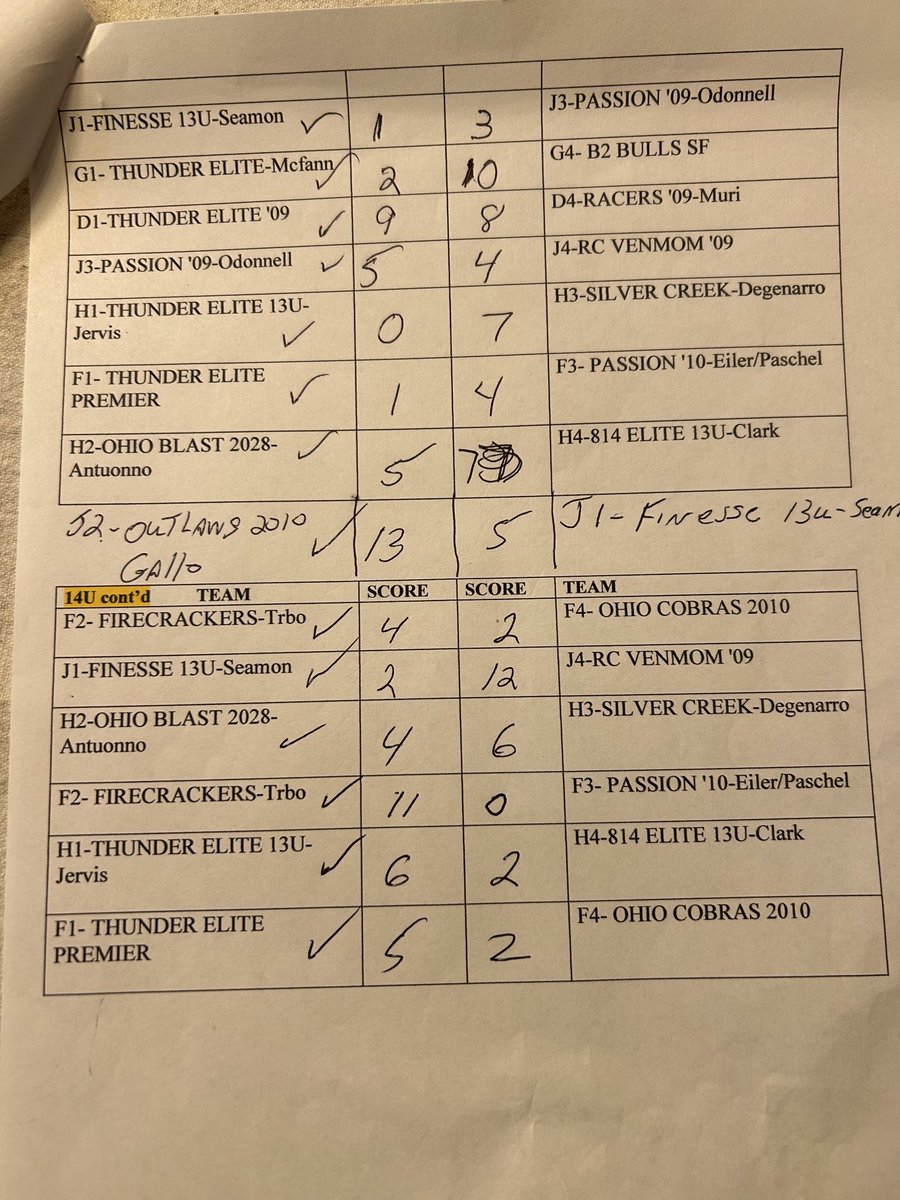 J1-FINESSE 13U-Seamon 1 3 J3-PASSION '09-Odonnell
G1- THUNDER ELITE-Mcfann 2 10 G4- B2 BULLS SF
D1-THUNDER ELITE '09 9 8 D4-RACERS '09-Muri
J3-PASSION '09-Odonnell 5 4 J4-RC VENMOM '09
H1-THUNDER ELITE 13U-
Jervis 0 7 H3-SILVER CREEK-Degenarro
F1- THUNDER ELITE
PREMIER 1 4 F3- PASSION '10-Eiler/Paschel
H2-OHIO BLAST 2028-
Antuonno 5 7 H4-814 ELITE 13U-Clark
J2-OUTLAWS 2010
Gallo 13 5 J1- Finesse 13u-Seam
14U cont'd TEAM SCORE SCORE TEAM
F2- FIRECRACKERS-Trbo 4 2 F4- OHIO COBRAS 2010
J1-FINESSE 13U-Seamon 2 12 J4-RC VENMOM '09
H2-OHIO BLAST 2028-
Antuonno 4 6 H3-SILVER CREEK-Degenarro
F2- FIRECRACKERS-Trbo 11 0 F3- PASSION '10-Eiler/Paschel
H1-THUNDER ELITE 13U-
Jervis 6 2 H4-814 ELITE 13U-Clark
F1- THUNDER ELITE
PREMIER 5 2 F4- OHIO COBRAS 2010